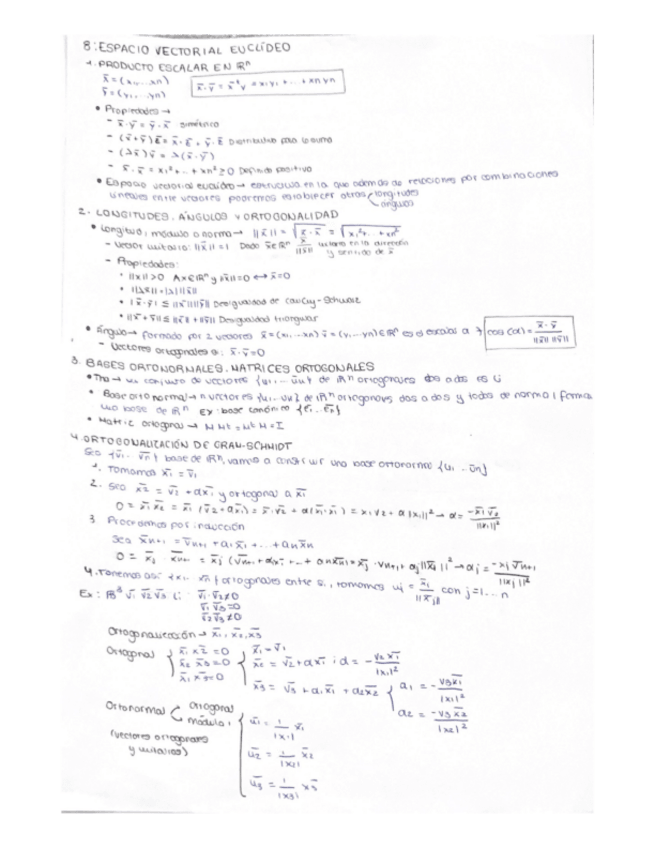 8: ESPACIO VECTORIAL EUCLÍDEO
1. PRODUCTO ESCALAR EN ℝⁿ
x̄ = (x₁, ... xn)
ȳ = (y₁, ... yn)
x̄ · ȳ = x̄ᵗ y = x₁y₁ + ... + xn yn
• Propiedades →
- x̄ · ȳ = ȳ · x̄ simétrico
- (x̄ + ȳ) z̄ = x̄ · z̄ + ȳ · z̄ Distributivo para la suma
- (λx̄) ȳ = λ(x̄ · ȳ)
- x̄ · x̄ = x₁² + ... + xn² ≥ 0 Definido positivo
• Espacio vectorial euclídeo → estructura en la que además de relaciones por combinaciones
lineales entre vectores podremos establecer otras longitudes
ángulos
2. LONGITUDES, ÁNGULOS Y ORTOGONALIDAD
• Longitud, módulo o norma → ||x̄|| = √x̄ · x̄ = √x₁² + ... + xn²
- Vector unitario: ||x̄|| = 1 Dado x̄ ∈ ℝⁿ x̄/||x̄|| unitario en la dirección
y sentido de x̄
- Propiedades:
• ||x̄|| > 0 ∀x ∈ ℝⁿ y ||x̄|| = 0 ↔ x̄ = 0
• ||λx̄|| = |λ| ||x̄||
• |x̄ · ȳ| ≤ ||x̄|| ||ȳ|| Desigualdad de Cauchy-Schwarz
• ||x̄ + ȳ|| ≤ ||x̄|| + ||ȳ|| Desigualdad triangular
• Ángulo → formado por 2 vectores x̄ = (x₁, ... xn) ȳ = (y₁, ... yn) ∈ ℝⁿ es el escalar α cos(α) = x̄ · ȳ / ||x̄|| ||ȳ||
- Vectores ortogonales si: x̄ · ȳ = 0
3. BASES ORTONORMALES. MATRICES ORTOGONALES
• Tma → un conjunto de vectores {ū₁, ... ūn} de ℝⁿ ortogonales dos a dos es Li
• Base ortonormal → n vectores {ū₁, ... ūn} de ℝⁿ ortogonales dos a dos y todos de norma 1 forma
una base de ℝⁿ Ex: base canónica {ē₁ ... ēn}
• Matriz ortogonal → M Mᵗ = Mᵗ M = I
4. ORTOGONALIZACIÓN DE GRAM-SCHMIDT
Sea {v̄₁ ... v̄n} base de ℝⁿ, vamos a construir una base ortonormal {ū₁ ... ūn}
1. Tomamos x̄₁ = v̄₁
2. Sea x̄₂ = v̄₂ + αx̄₁ y ortogonal a x̄₁
0 = x̄₁ x̄₂ = x̄₁ (v̄₂ + αx̄₁) = x̄₁ · v̄₂ + α(x̄₁ · x̄₁) = x₁ v₂ + α|x₁|² → α = -x̄₁ v̄₂ / ||x₁||²
3 Procedemos por inducción
Sea x̄n+1 = v̄n+1 + α₁x̄₁ + ... + αn x̄n
0 = x̄j · x̄n+1 = x̄j (v̄n+1 + α₁x̄₁ + ... + αn x̄n) = x̄j · vn+1 + αj ||x̄j||² → αj = -xj v̄n+1 / ||xj||²
4. Tenemos así {x₁ ... xn} ortogonales entre sí, tomamos uj = x̄j / ||x̄j|| con j = 1 ... n
Ex: ℝ³ v̄₁ v̄₂ v̄₃ Li v̄₁ · v̄₂ ≠ 0
v̄₁ v̄₃ = 0
v̄₂ v̄₃ ≠ 0
Ortogonalización → x̄₁, x̄₂, x̄₃
Ortogonal x̄₁ x̄₂ = 0
x̄₂ x̄₃ = 0
x̄₁ x̄₃ = 0
x̄₁ = v̄₁
x̄₂ = v̄₂ + αx̄₁ ; α = - v₂ x̄₁ / |x₁|²
x̄₃ = v̄₃ + α₁ x̄₁ + α₂ x̄₂
α₁ = - v₃ x̄₁ / |x₁|²
α₂ = - v₃ x̄₂ / |x₂|²
Ortonormal ortogonal
módulo 1
(vectores ortogonales
y unitarios)
ū₁ = 1/|x₁| x̄₁
ū₂ = 1/|x₂| x̄₂
ū₃ = 1/|x₃| x̄₃